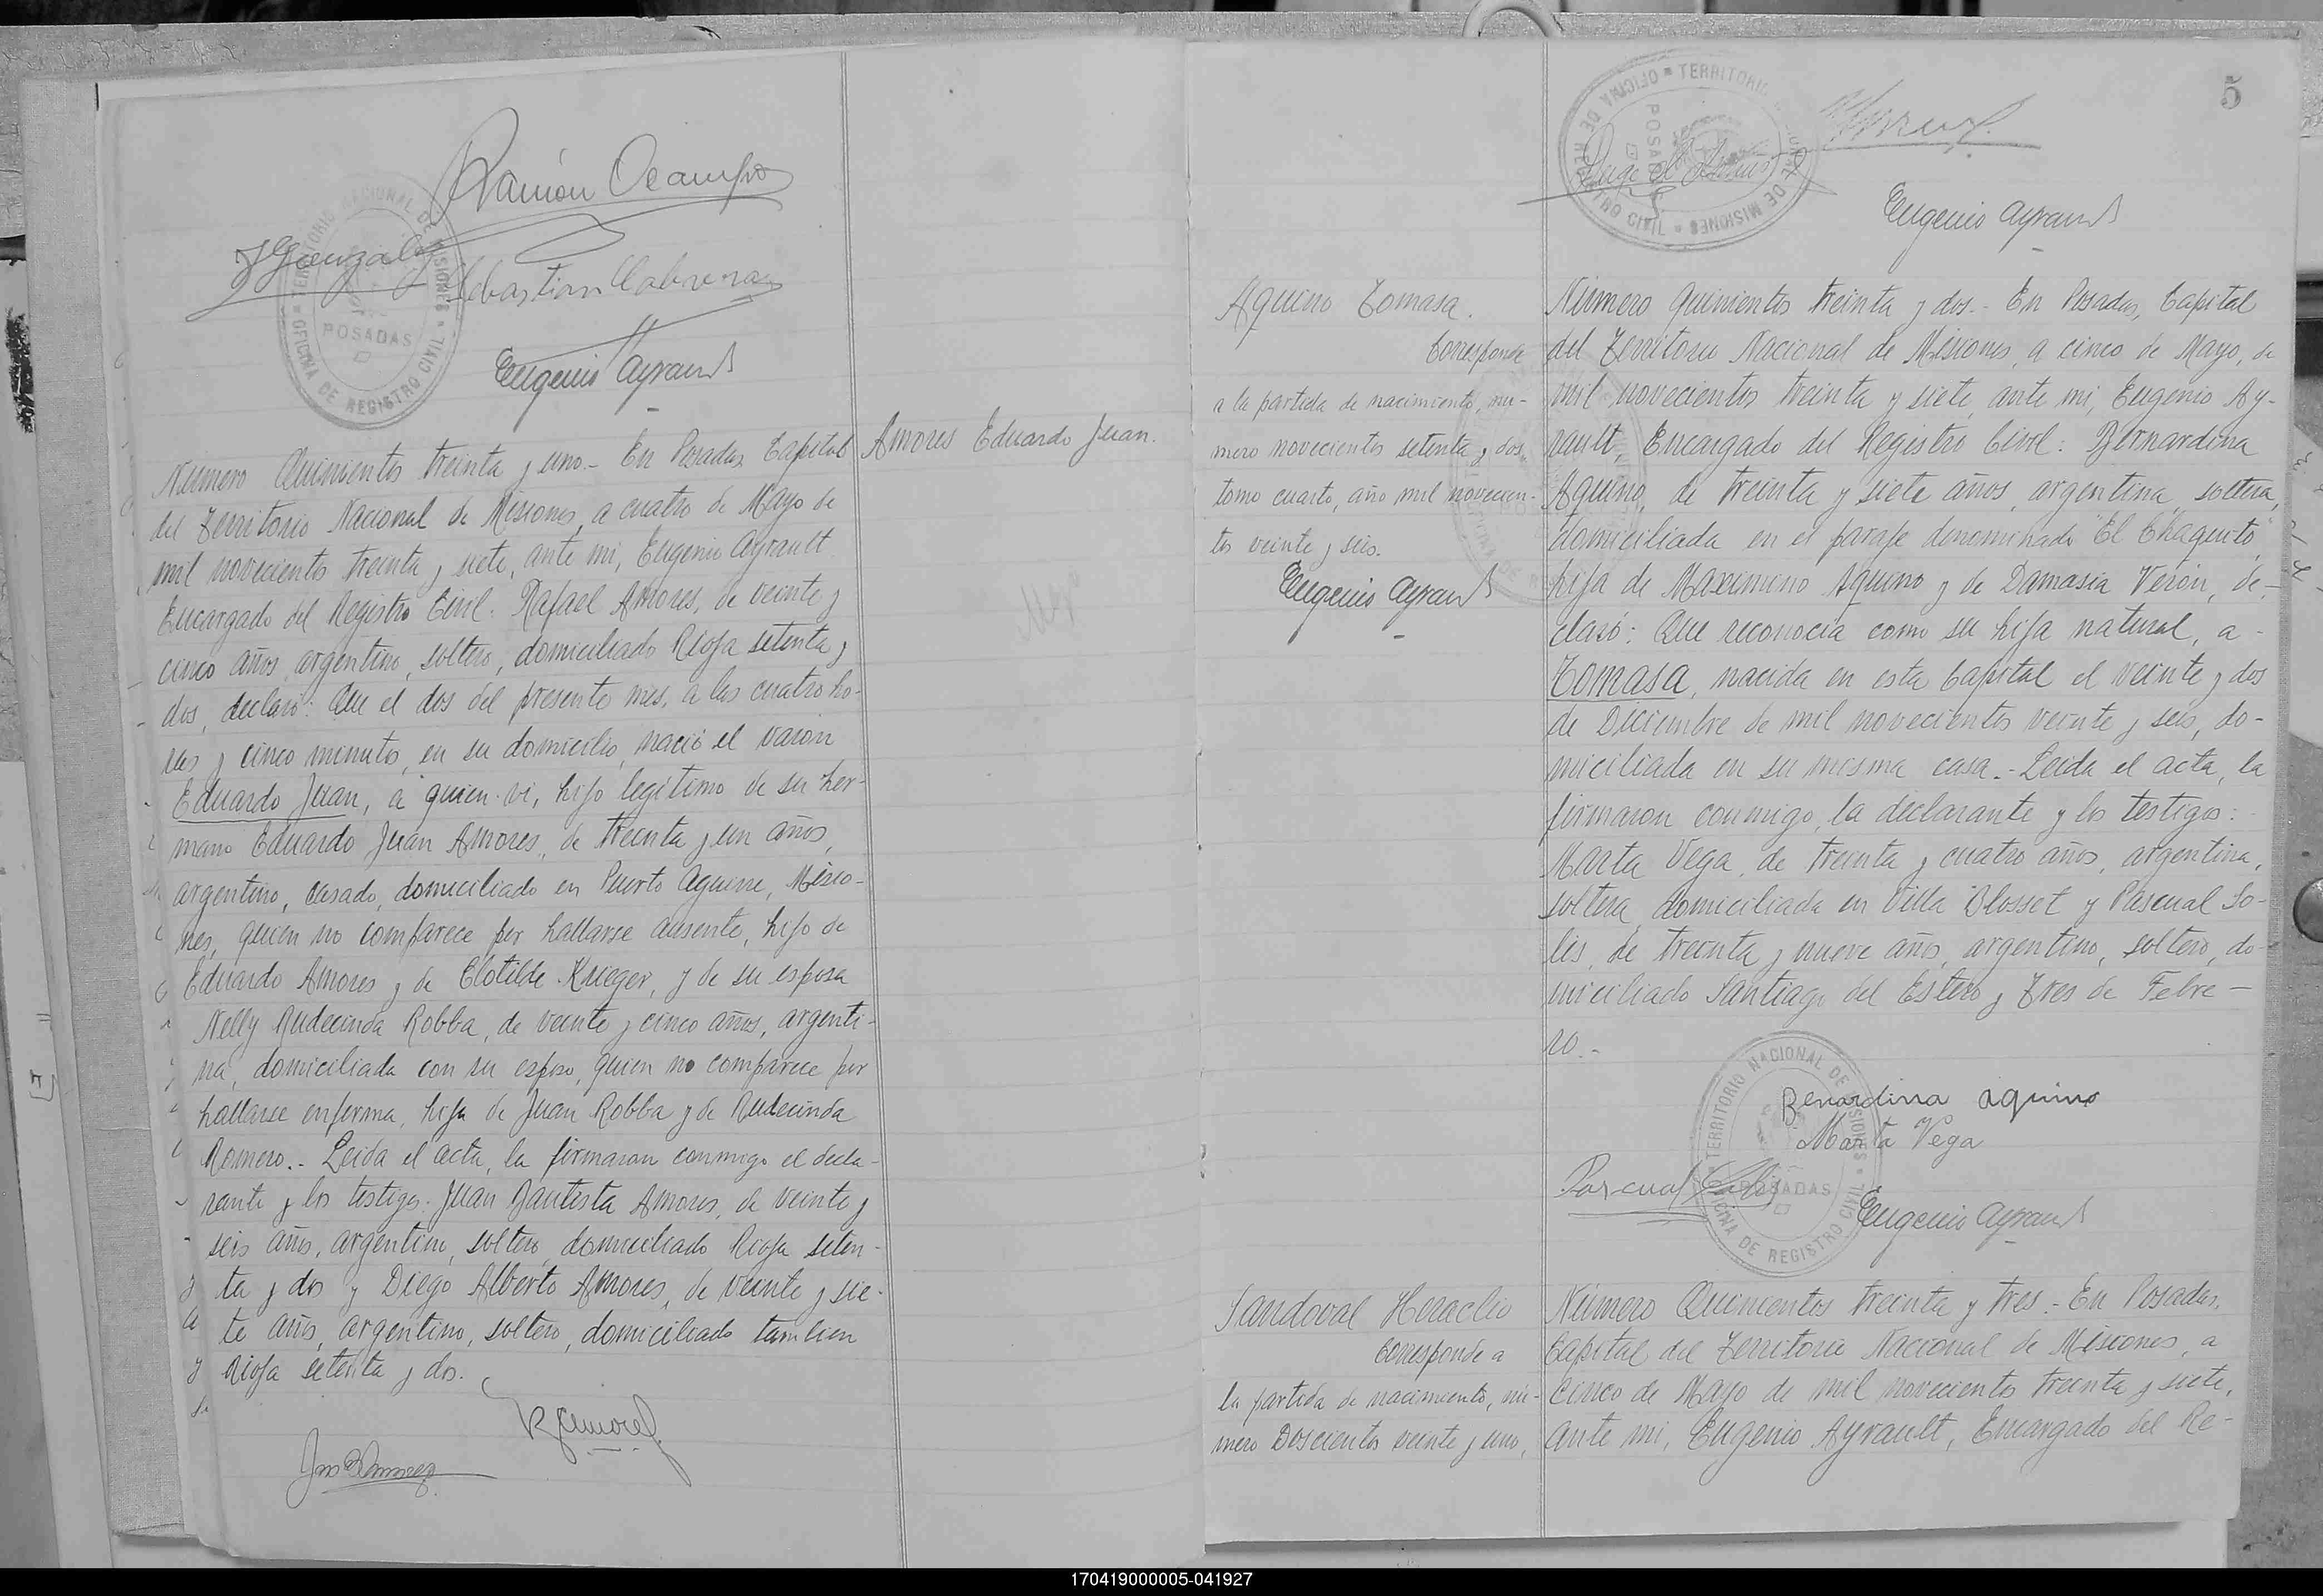 Ramón Ocampo
JGonzalez
Sebastian Cabrera
Eugenio Ayrault
TERRITORIO NACIONAL DE MISIONES
OFICINA DE REGISTRO CIVIL
POSADAS
Amores Eduardo Juan.
Número Quinientos treinta y uno.- En Posadas, Capital
del Territorio Nacional de Misiones, a cuatro de Mayo de
mil novecientos treinta y siete, ante mi, Eugenio Ayrault
Encargado del Registro Civil: Rafael Amores, de veinte y
cinco años, argentino, soltero, domiciliado Rioja setenta y
dos, declaró: Que el dos del presente mes, a las cuatro ho-
ras y cinco minutos, en su domicilio, nació el varón
Eduardo Juan, a quien vi, hijo legítimo de su her-
mano Eduardo Juan Amores, de treinta y un años,
argentino, casado, domiciliado en Puerto Aguirre, Misio-
nes, quien no comparece por hallarse ausente, hijo de
Eduardo Amores y de Clotilde Krieger, y de su esposa
Nelly Rudecinda Robba, de veinte y cinco años, argenti-
na, domiciliada con su esposo, quien no comparece por
hallarse enferma, hija de Juan Robba y de Rudecinda
Romero.- Leída el acta, la firmaron conmigo el decla-
rante y los testigos: Juan Bautista Amores, de veinte y
seis años, argentino, soltero, domiciliado Rioja seten-
ta y dos y Diego Alberto Amores, de veinte y sie-
te años, argentino, soltero, domiciliado tambien
Rioja setenta y dos.
RAmores
5
TERRITORIO NACIONAL DE MISIONES
OFICINA DE REGISTRO CIVIL
POSADAS
Diego A Amores
Eugenio Ayrault
Aquino Tomasa.
Corresponde
a la partida de nacimiento, nú-
mero novecientos setenta y dos,
tomo cuarto, año mil novecien-
tos veinte y seis.
Eugenio Ayrault
Número Quinientos treinta y dos.- En Posadas, Capital
del Territorio Nacional de Misiones, a cinco de Mayo, de
mil novecientos treinta y siete, ante mi, Eugenio Ay-
rault, Encargado del Registro Civil: Bernardina
Aquino, de treinta y siete años, argentina, soltera,
domiciliada en el paraje denominado "El Chaquito",
hija de Maximino Aquino y de Damasia Verón, de-
claró: Que reconocía como su hija natural, a-
Tomasa, nacida en esta Capital el veinte y dos
de Diciembre de mil novecientos veinte y seis, do-
miciliada en su misma casa.- Leída el acta, la
firmaron conmigo, la declarante y los testigos:
Marta Vega, de treinta y cuatro años, argentina,
soltera, domiciliada en Villa Blosset y Pascual So-
lis, de treinta y nueve años, argentino, soltero, do-
miciliado Santiago del Estero y Tres de Febre-
ro.-
TERRITORIO NACIONAL DE MISIONES
OFICINA DE REGISTRO CIVIL
POSADAS
Benardina aquino
Marta Vega
Pascual Solis
Eugenio Ayrault
Sandoval Heraclio
Corresponde a
la partida de nacimiento, nú-
mero Doscientos veinte y uno,
Número Quinientos treinta y tres.- En Posadas,
Capital del Territorio Nacional de Misiones, a
cinco de Mayo de mil novecientos treinta y siete,
ante mi, Eugenio Ayrault, Encargado del Re-
170419000005-041927